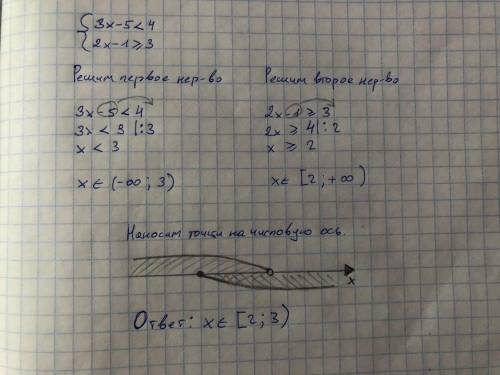 {3x-5<4
{2x-1≥3
Решим первое нер-во
3x-5<4
3x<9 |:3
x<3
x∈(-∞; 3)
Решим второе нер-во
2x-1≥3
2x≥4|:2
x≥2
x∈[2; +∞)
Наносим точки на числовую ось.
x
Ответ: x∈[2; 3)